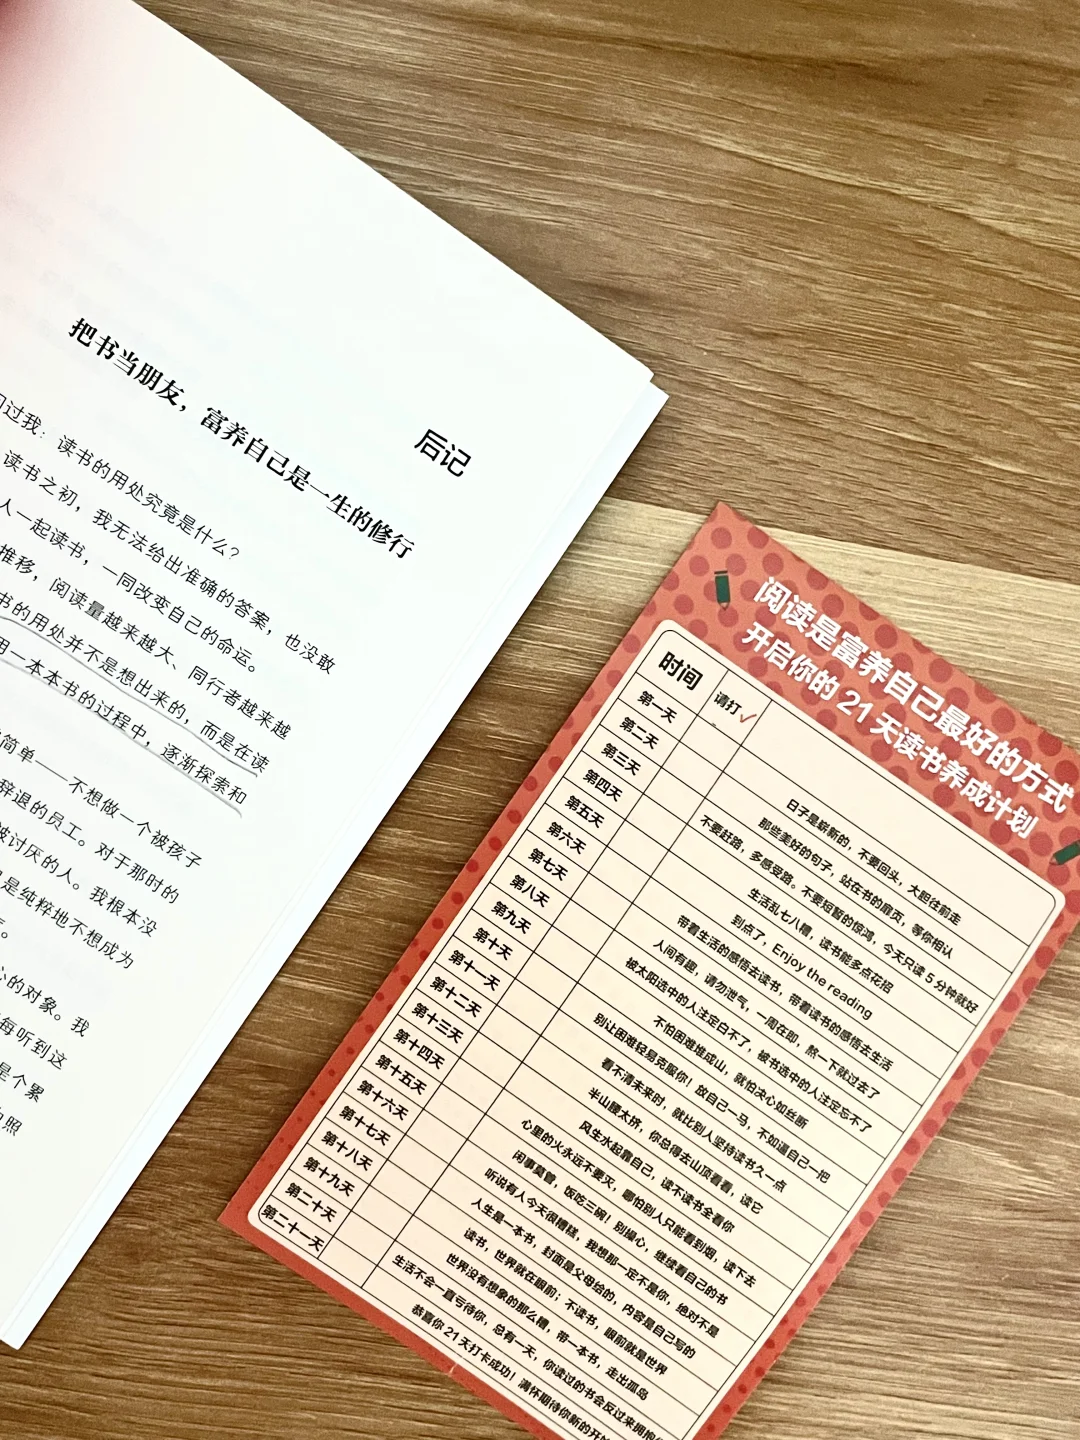 后记
把书当朋友，富养自己是一生的修行
问过我：读书的用处究竟是什么？
读书之初，我无法给出准确的答案，也没敢
人一起读书，一同改变自己的命运。
推移，阅读量越来越大、同行者越来越
书的用处并不是想出来的，而是在读
用一本本书的过程中，逐渐探索和
简单——不想做一个被孩子
辞退的员工。对于那时的
被讨厌的人。我根本没
是纯粹地不想成为
。
心的对象。我
每听到这
是个累
照
阅读是富养自己最好的方式
开启你的 21 天读书养成计划
时间 请打√
第一天 日子是崭新的，不要回头，大胆往前走
第二天 那些美好的句子，站在书的扉页，等你相认
第三天 不要赶路，多感受路。不要短暂的惊鸿，今天只读 5 分钟就好
第四天 生活乱七八糟，读书能多点花招
第五天 到点了，Enjoy the reading
第六天 带着生活的感悟去读书，带着读书的感悟去生活
第七天 人间有趣，请勿泄气，一周在即，熬一下就过去了
第八天 被太阳选中的人注定白不了，被书选中的人注定忘不了
第九天 不怕困难堆成山，就怕决心如丝断
第十天 别让困难轻易克服你！放自己一马，不如逼自己一把
第十一天 看不清未来时，就比别人坚持读书久一点
第十二天 半山腰太挤，你总得去山顶看看，读它
第十三天 风生水起靠自己，读不读书全看你
第十四天 心里的火永远不要灭，哪怕别人只能看到烟，读下去
第十五天 闲事莫管，饭吃三碗！别操心，继续看自己的书
第十六天 听说有人今天很糟糕，我想那一定不是你，绝对不是
第十七天 人生是一本书，封面是父母给的，内容是自己写的
第十八天 读书，世界就在眼前；不读书，眼前就是世界
第十九天 世界没有想象的那么糟，带一本书，走出孤岛
第二十天 生活不会一直亏待你，总有一天，你读过的书会反过来拥抱
第二十一天 恭喜你 21 天打卡成功！满怀期待你新的开始